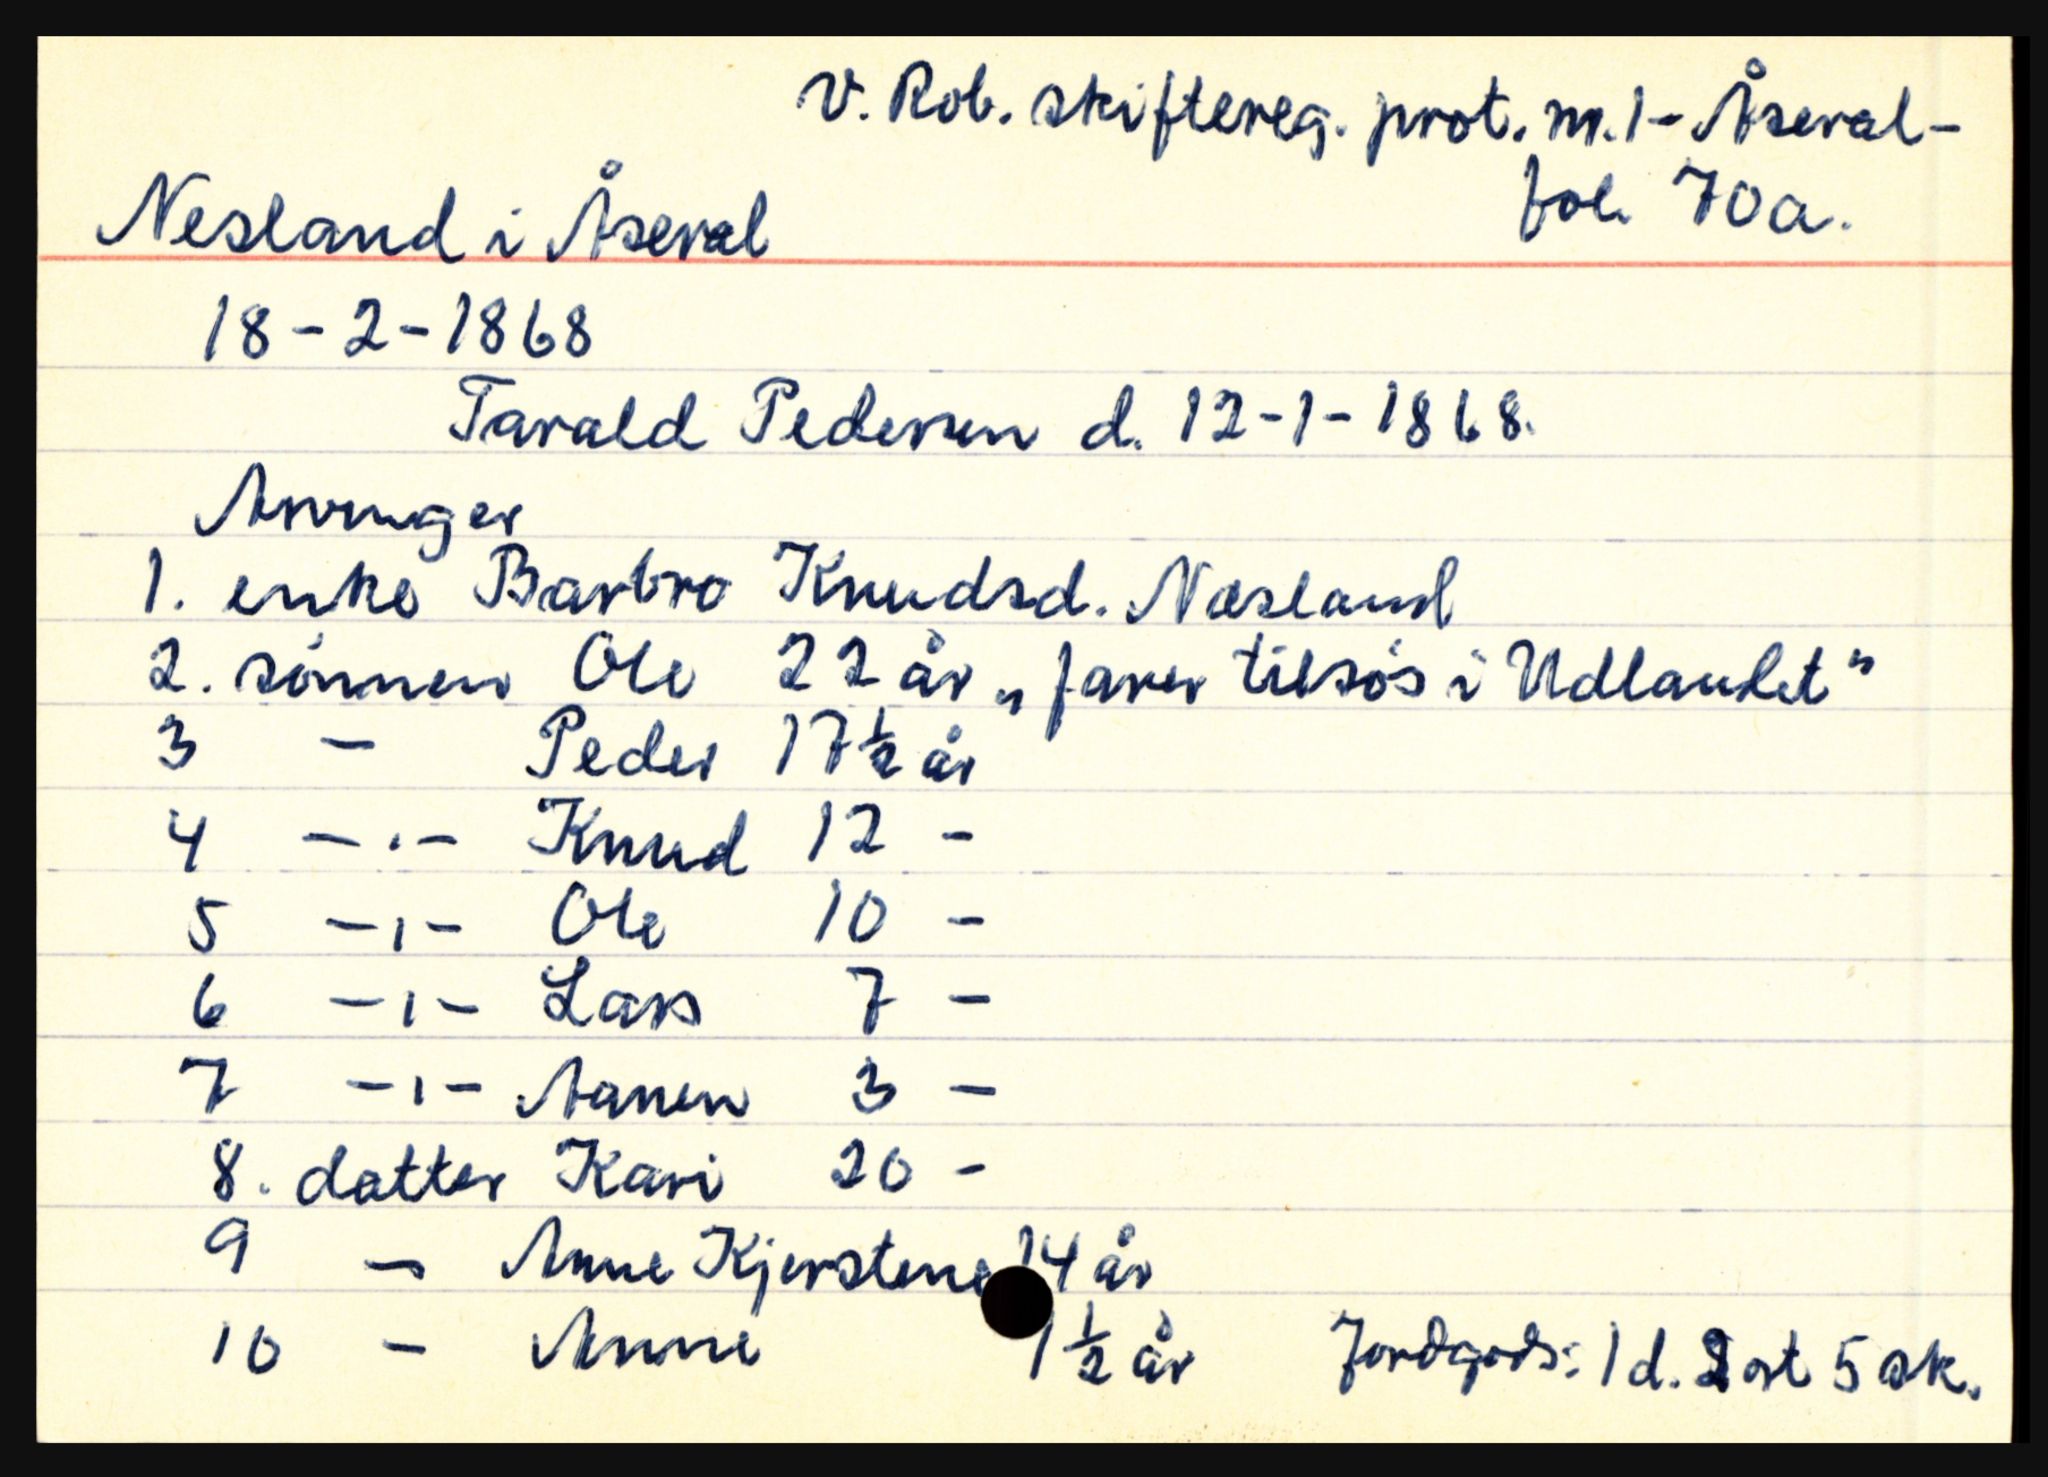 V. Rob. skiftereg. prot. nr. 1 - Åseral -
fol. 70a.
Nesland i Åseral
18 - 2 - 1868
Tarald Pedersen d. 12-1-1868.
Arvinger
1. enke Barbro Knudsd. Næsland
2. sønnen Ole 22 år „farer tilsøs i Udlandet"
3 - Peder 17½ år
4 -·- Knud 12 -
5 -ı- Ole 10 -
6 -ı- Lars 7 -
7 -ı- Aanen 3 -
8. datter Kari 20 -
9 - Anne Kjerstene 14 år
10 - Anne 1½ år Jordgods: 1 d. 2 ort 5 sk.